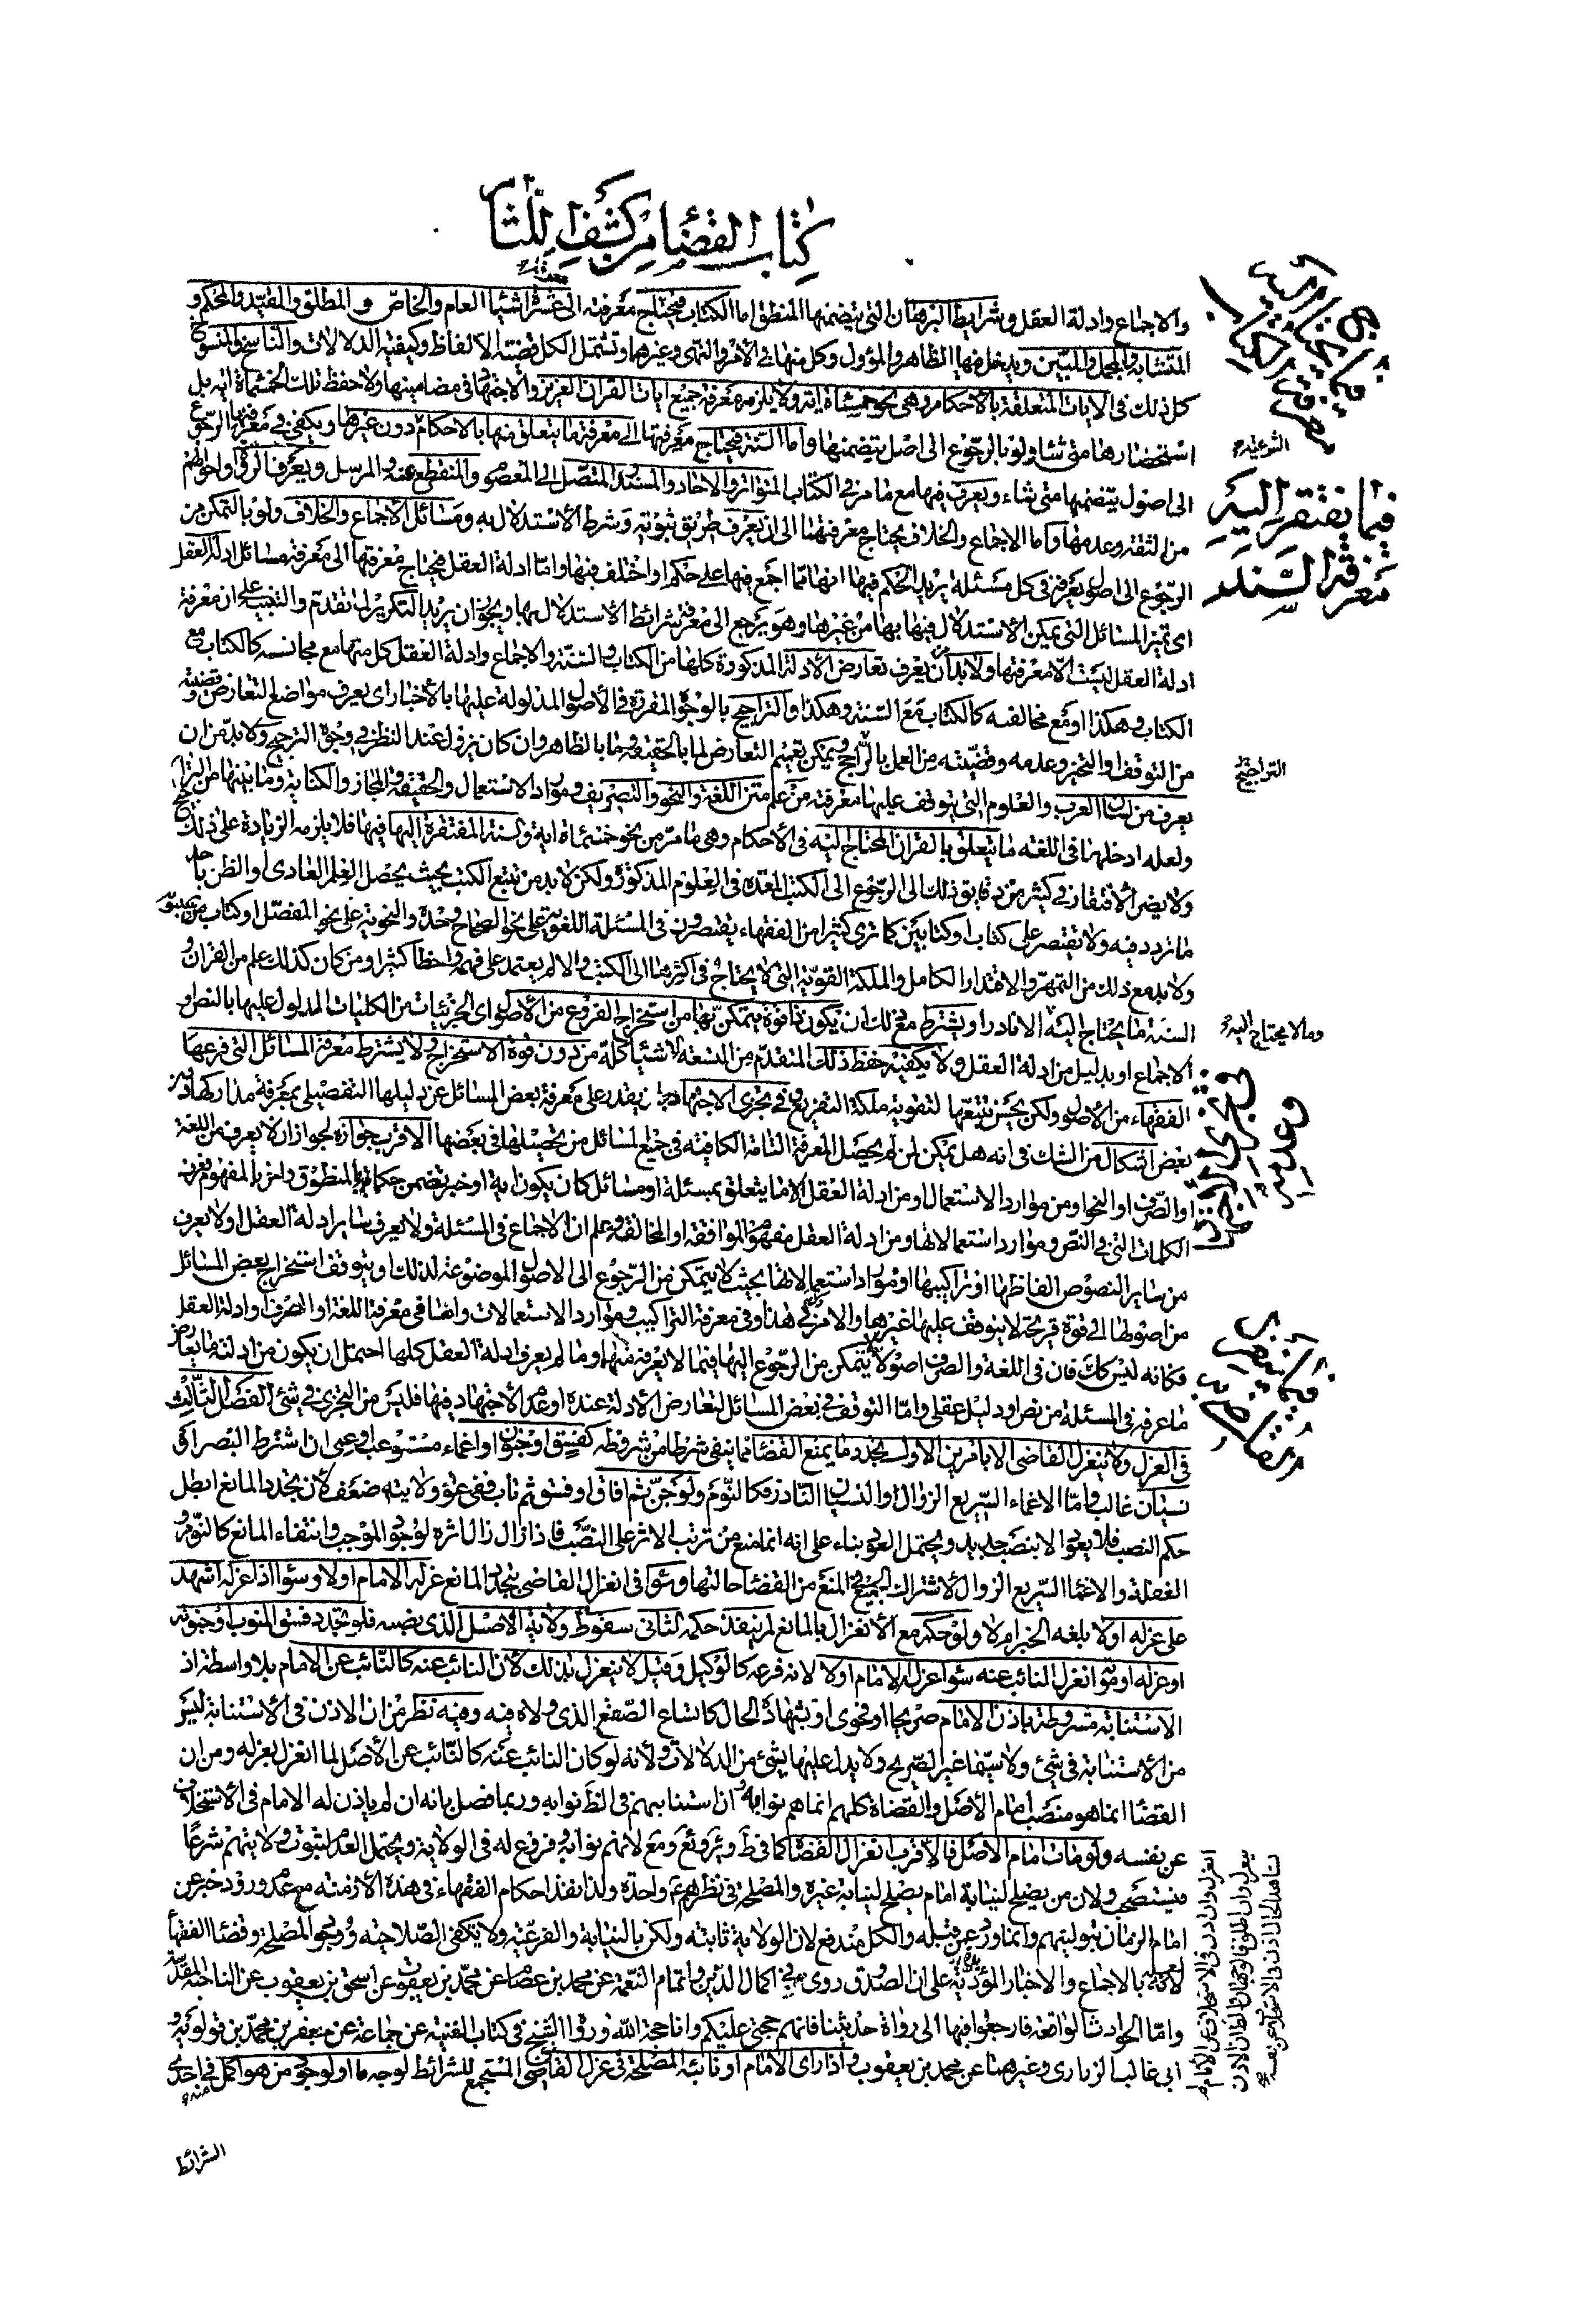 كتاب القضا من كشف اللثام
والاجماع وادلة العقل وشرايط البرهان التي يتضمنها المنطق اما الكتاب فيحتاج معرفته الى عشرة اشيا العام والخاص والمطلق والمقيد والمحكم و
المتشابه والمجمل والمبين ويدخل فيها الظاهر والمؤول وكل منها في الامر والنهى وغيرها وتشتمل الكل قضيته الالفاظ وكيفية الدلالات والناسخ والمنسوخ
كل ذلك في الايات المتعلقة بالاحكام وهي نحو خمسمائة اية ولا يلزمه معرفة جميع ايات القران العزيز والاجتهاد في مضامينها ولا حفظ تلك الخمسمأة اية بل
استحضارها متى شئا ولو بالرجوع الى اصل يتضمنها واما السنة فيحتاج معرفتها الى معرفة ما يتعلق منها بالاحكام دون غيرها ويكفي في معرفتها الرجوع
الى اصول يتضمنها متى شاء ويعرف فيها مع ما مر في الكتاب المتواتر والاحاد والمسند والمتصل والمنقطع والمرسل ويعرف الرواة واحوالهم
من الثقة وعدمها واما الاجماع والخلاف يحتاج معرفتهما الى ان يعرف طريق ثبوته وشرط الاستدلال به ومسائل الاجماع والخلاف ولو بالتمكن من
الرجوع الى اصول يعرفه في كل مسئلة يريد الحكم فيها انها مما اجمع فيها على حكم او اختلف فيها واما ادلة العقل فيحتاج معرفتها الى معرفة مسائل ادلة العقل
اى تميز المسائل التي يمكن الاستدلال فيها بها من غيرها وهو يرجع الى معرفة شرائط الاستدلال بها ويجوز ان يريد التكرير لما تقدم والتنبيه على ان معرفة
ادلة العقل ليست الا معرفتها ولا بد ان يعرف تعارض الأدلة المذكورة كلها من الكتاب والسنة والاجماع وادلة العقل كل منها مع مجانسه كالكتاب مع
الكتاب وهكذا او مع مخالفه كالكتاب مع السنة وهكذا والتراجيح بالوجوه المقررة في الأصول المدلولة عليها بالأخبار اى يعرف مواضع التعارض وقضيته
من التوقف او التخير وعدمه وقضيته من العمل بالراجح ويمكن تعميم التعارض لما بالحقيقة وما بالظاهر وان كان يزول عند النظر في وجوه الترجيح ولا بد من ان
يعرف من لسان العرب والعلوم التي يتوقف عليها معرفته من علم متن اللغة والنحو والتصريف وموارد الاستعمال والحقيقة والمجاز والكناية وما بينها من
ولعله ادخلها في اللغة ما يتعلق بالقران المحتاج اليه في الأحكام وهى ما مر من نحو خمسمأة اية والسنة المفتقرة اليها فيها فلا يلزمه الزيادة على ذلك
ولا يضر الأفتقار في كثير من دقايق ذلك الى الرجوع الى الكتب المعدة في العلوم المذكورة ولكن لا بد من تتبع الكتب بحيث يحصل العلم العادى او الظن
ما تردد فيه ولا يقتصر على كتاب او كتابين كما ترى كثيرا من الفقهاء يقتصرون في المسئلة اللغوية على نحو الصحاح وحده والنحوية على نحو المفصل او كتاب سيبويه
ولا بد مع ذلك من التمهر والاقتدار الكامل والملكة القوية التي لا يحتاج في اكثرها الى الكتب والا لم يعتمد على فهمه واخطأ كثيرا ومن كان كذلك علم من القران و
السنة ما يحتاج اليه الا نادرا ويشترط مع ذلك ان يكون ذا قوة يتمكن بها من استخراج الفروع من الأصول اى الجزئيات من الكليات المدلول عليها بالنص او
الاجماع او بدليل من ادلة العقل ولا يكفيه حفظ ذلك المتقدم من التسعة الاشيا كله من دون قوة الاستخراج ولا يشترط معرفة المسائل التي فرعها
الفقهاء من الأصول ولكن يحسن تتبعها لتقوية ملكة التفريع وفي تجزى الاجتهاد يقدر على معرفة بعض المسائل عن دليلها التفصيلي بمعرفة مداركها دون
بعض اشكال من الشك في انه هل يمكن لمن لم يحصل المعرفة التامة الكافية في جميع المسائل من تحصيلها في بعضها الاقرب جوازه لجواز ان لا يعرف من اللغة
او الصرف او النحو ومن موارد الاستعمال او من ادلة العقل الا ما يتعلق بمسئلة او مسائل كان يكون اية او خبر تضمن حكما بالمنطوق واخر بالمفهوم فعرف
الكلمات التي في النص وموارد استعمالاتها ومن ادلة العقل مفهومى الموافقة او المخالفة وعلم ان لا اجماع في المسئلة ولا يعرف ساير ادلة العقل او لا يعرف
من ساير النصوص الفاظها او تراكيبها او موارد استعمالاتها بحيث لا يتمكن من الرجوع الى الاصول الموضوعة لذلك او يتوقف استخراج بعض المسائل
من اصولها الى قوة قريحة لا يتوقف عليها غيرها والامر في هذا وفي معرفة التراكيب وموارد الاستعمالات واما في معرفة اللغة او الصرف او ادلة العقل
فكانه ليس كك فان في اللغة والصرف اصولا يتمكن من الرجوع اليها فيما لا يعرفه منهما وما لم يعرف ادلة العقل كلها احتمل ان يكون من ادلته ما يعارض
ما عرفه في المسئلة من نص او دليل عقلى واما التوقف في بعض المسائل لتعارض الأدلة عنده او عدم الأجتهاد فيها فليس من التجزى في شئ الفصل الثالث
في العزل ولا ينعزل القاضى الا بامرين الاول تجدد ما يمنع القضا مما ينفى شرطا من شروطه كفسق او جنون او اغماء مستوعب او عمى ان اشترط البصر او
نسيان غالب واما الاغماء السريع الزوال والنسيان النادر فكالنوم ولو جن ثم افاق او فسق ثم تاب ففى عود ولايته ضعف لان تجدد المانع ابطل
حكم النصب فلا يعود الا بنصب جديد ويحتمل العود بناء على انه انما منع من ترتب الاثر على النصب فاذا زال زال اثره لوجود الموجب وانتفاء المانع كالنوم و
الغفلة والاغما السريع الزوال لأشتراك الجميع في المنع من القضا حالتها وسوا في انعزال القاضى بتجدد المانع عزله الامام اولا وسوا اذا عزله اشهد
على عزله اولا بلغه الخبر ام لا ولو حكم مع الأنعزال بالمانع لم ينفذ حكمه الثانى سقوط ولاية الاصل الذى نصبه فلو تجدد فسق المنوب او جنونه
او عزله او موته انعزل النائب عنه سوا عزله الامام اولا لانه فرعه كالوكيل وقيل لا ينعزل بذلك لأن النائب عنه كالنائب عن الامام بلا واسطة اذ
الاستنابة مشروطة باذن الامام صريحا او فحوى او بشهادة الحال كاتساع الصقع الذى ولاه فيه وفيه نظر من ان الاذن في الأستنابة ليس
من الأستنابة في شئ ولا سيما غير الصريح ولا يدل عليها بشئ من الدلالات ولأنه لو كان النائب عنه كالنائب عن الأصل لما انعزل بعزله ومن ان
القضا انما هو منصب امام الأصل والقضاة كلهم انما هم نوابه وان استنابهم في الظ نوابه وربما فصل بانه ان لم ياذن له الامام في الأستخلاف
عن نفسه ولو مات امام الاصل فالاقرب انعزال القضاة كما في ط ويع ويع لانهم نوابه وفروع له في الولاية ويحتمل العدم لثبوت ولايتهم شرعا
فيستصحب ولان من يصلح لنيابة امام يصلح لنيابة غيره والمصلحة في نظرهم واحدة ولذا نفذ احكام الفقهاء في هذه الأزمنة مع عدم ورود خبر عن
امام الزمان بتوليتهم وانما ورد عمن قبله والكل مندفع لان الولاية ثابتة ولكن بالنيابة والفرعية ولا يكفى الصلاحية ووجود المصلحة وقضا الفقها
بالاجماع والاخبار المؤيدة على ان الصدوق روى في اكمال الدين واتمام النعمة عن محمد بن عصام عن محمد بن يعقوب عن اسحق بن يعقوب عن الناحية المقدسة
واما الحوادث الواقعة فارجعوا فيها الى رواة حديثنا فانهم حجتى عليكم وانا حجة الله ورواه الشيخ في كتاب الغيبة عن جماعة عن جعفر بن محمد بن قولويه و
ابى غالب الزرارى وغيرهما عن محمد بن يعقوب واذا راى الامام او نائبه المصلحة في عزل القاضى المستجمع للشرائط لوجه ما او لوجود من هو اكمل في احدى
الشرائط
الشرعية
فيما يفتقر اليه
معرفة السند
التراجيح
وما لا يحتاج اليه
انعزل وان اذن في الاستخلاف عن الامام